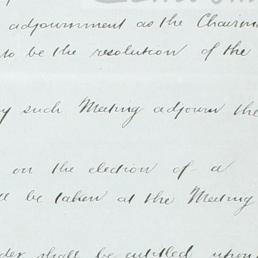 adjournment as the Chairm
to be the resolution of the
y such Meeting adjourn the
on the election of a
ll be taken at the Meeting
der shall be entitled upon